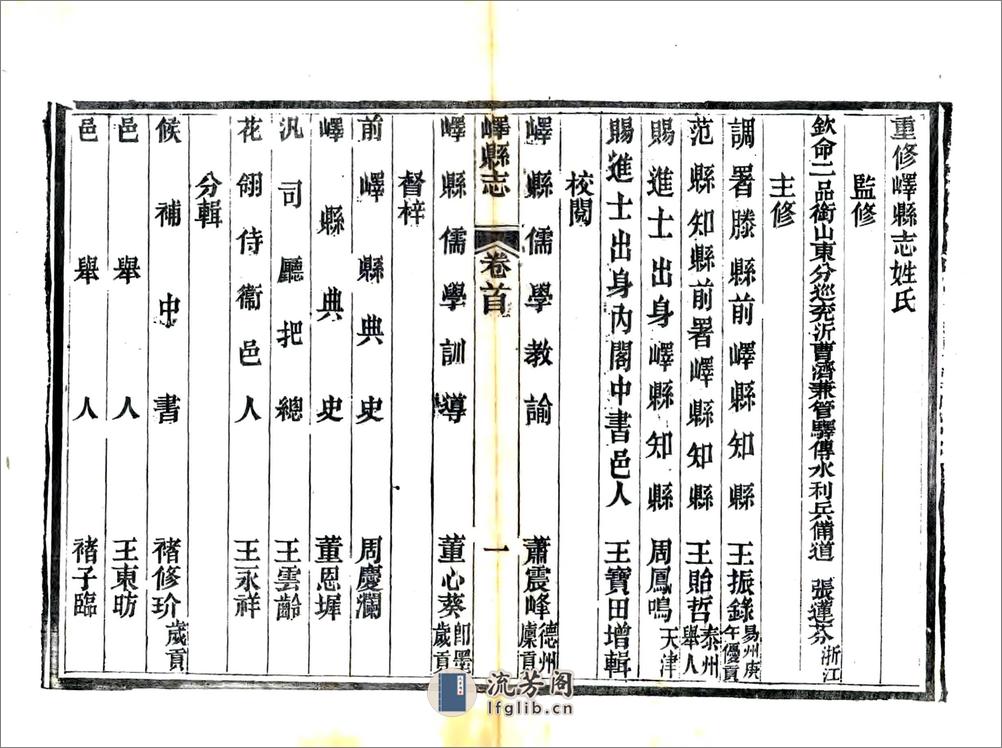 重修嶧縣志姓氏
監修
欽命二品銜山東分巡兗沂曹濟兼管驛傳水利兵備道 張蓮芬 浙江
主修
調署滕縣前嶧縣知縣 王振錄 易州庚午優貢
范縣知縣前署嶧縣知縣 王貽哲 泰州舉人
賜進士出身嶧縣知縣 周鳳鳴 天津
賜進士出身內閣中書邑人 王寶田增輯
校閱
嶧縣儒學教諭 蕭震峰 德州廩貢
嶧縣志 卷首 一
嶧縣儒學訓導 董心葵 即墨歲貢
督梓
前嶧縣典史 周慶瀾
嶧縣典史 董恩墀
汛司廳把總 王雲齡
花翎侍衞邑人 王永祥
分輯
候補中書 褚修玠 歲貢
邑舉人 王東昉
邑舉人 褚子臨
流芳阁
lfglib.cn